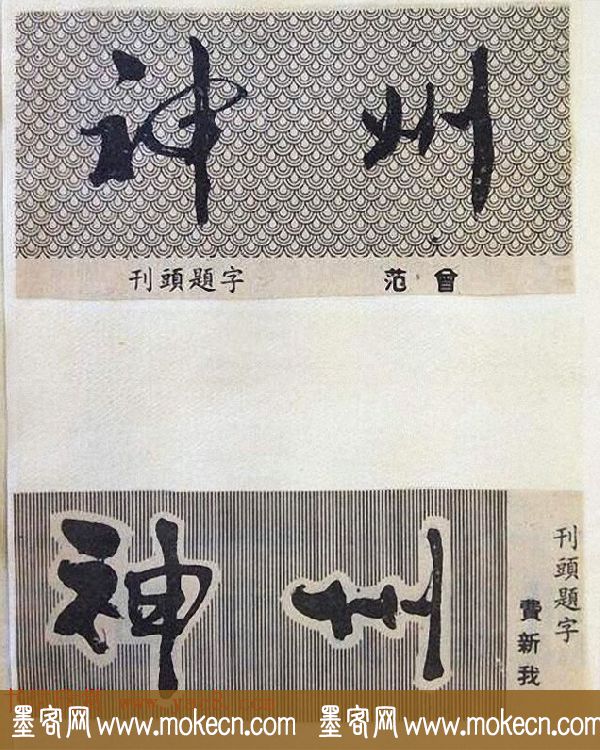 神州
刊頭題字 范曾
神州
刊頭題字
費新我
墨客网 www.mokecn.com 墨客网 www.mokecn.com